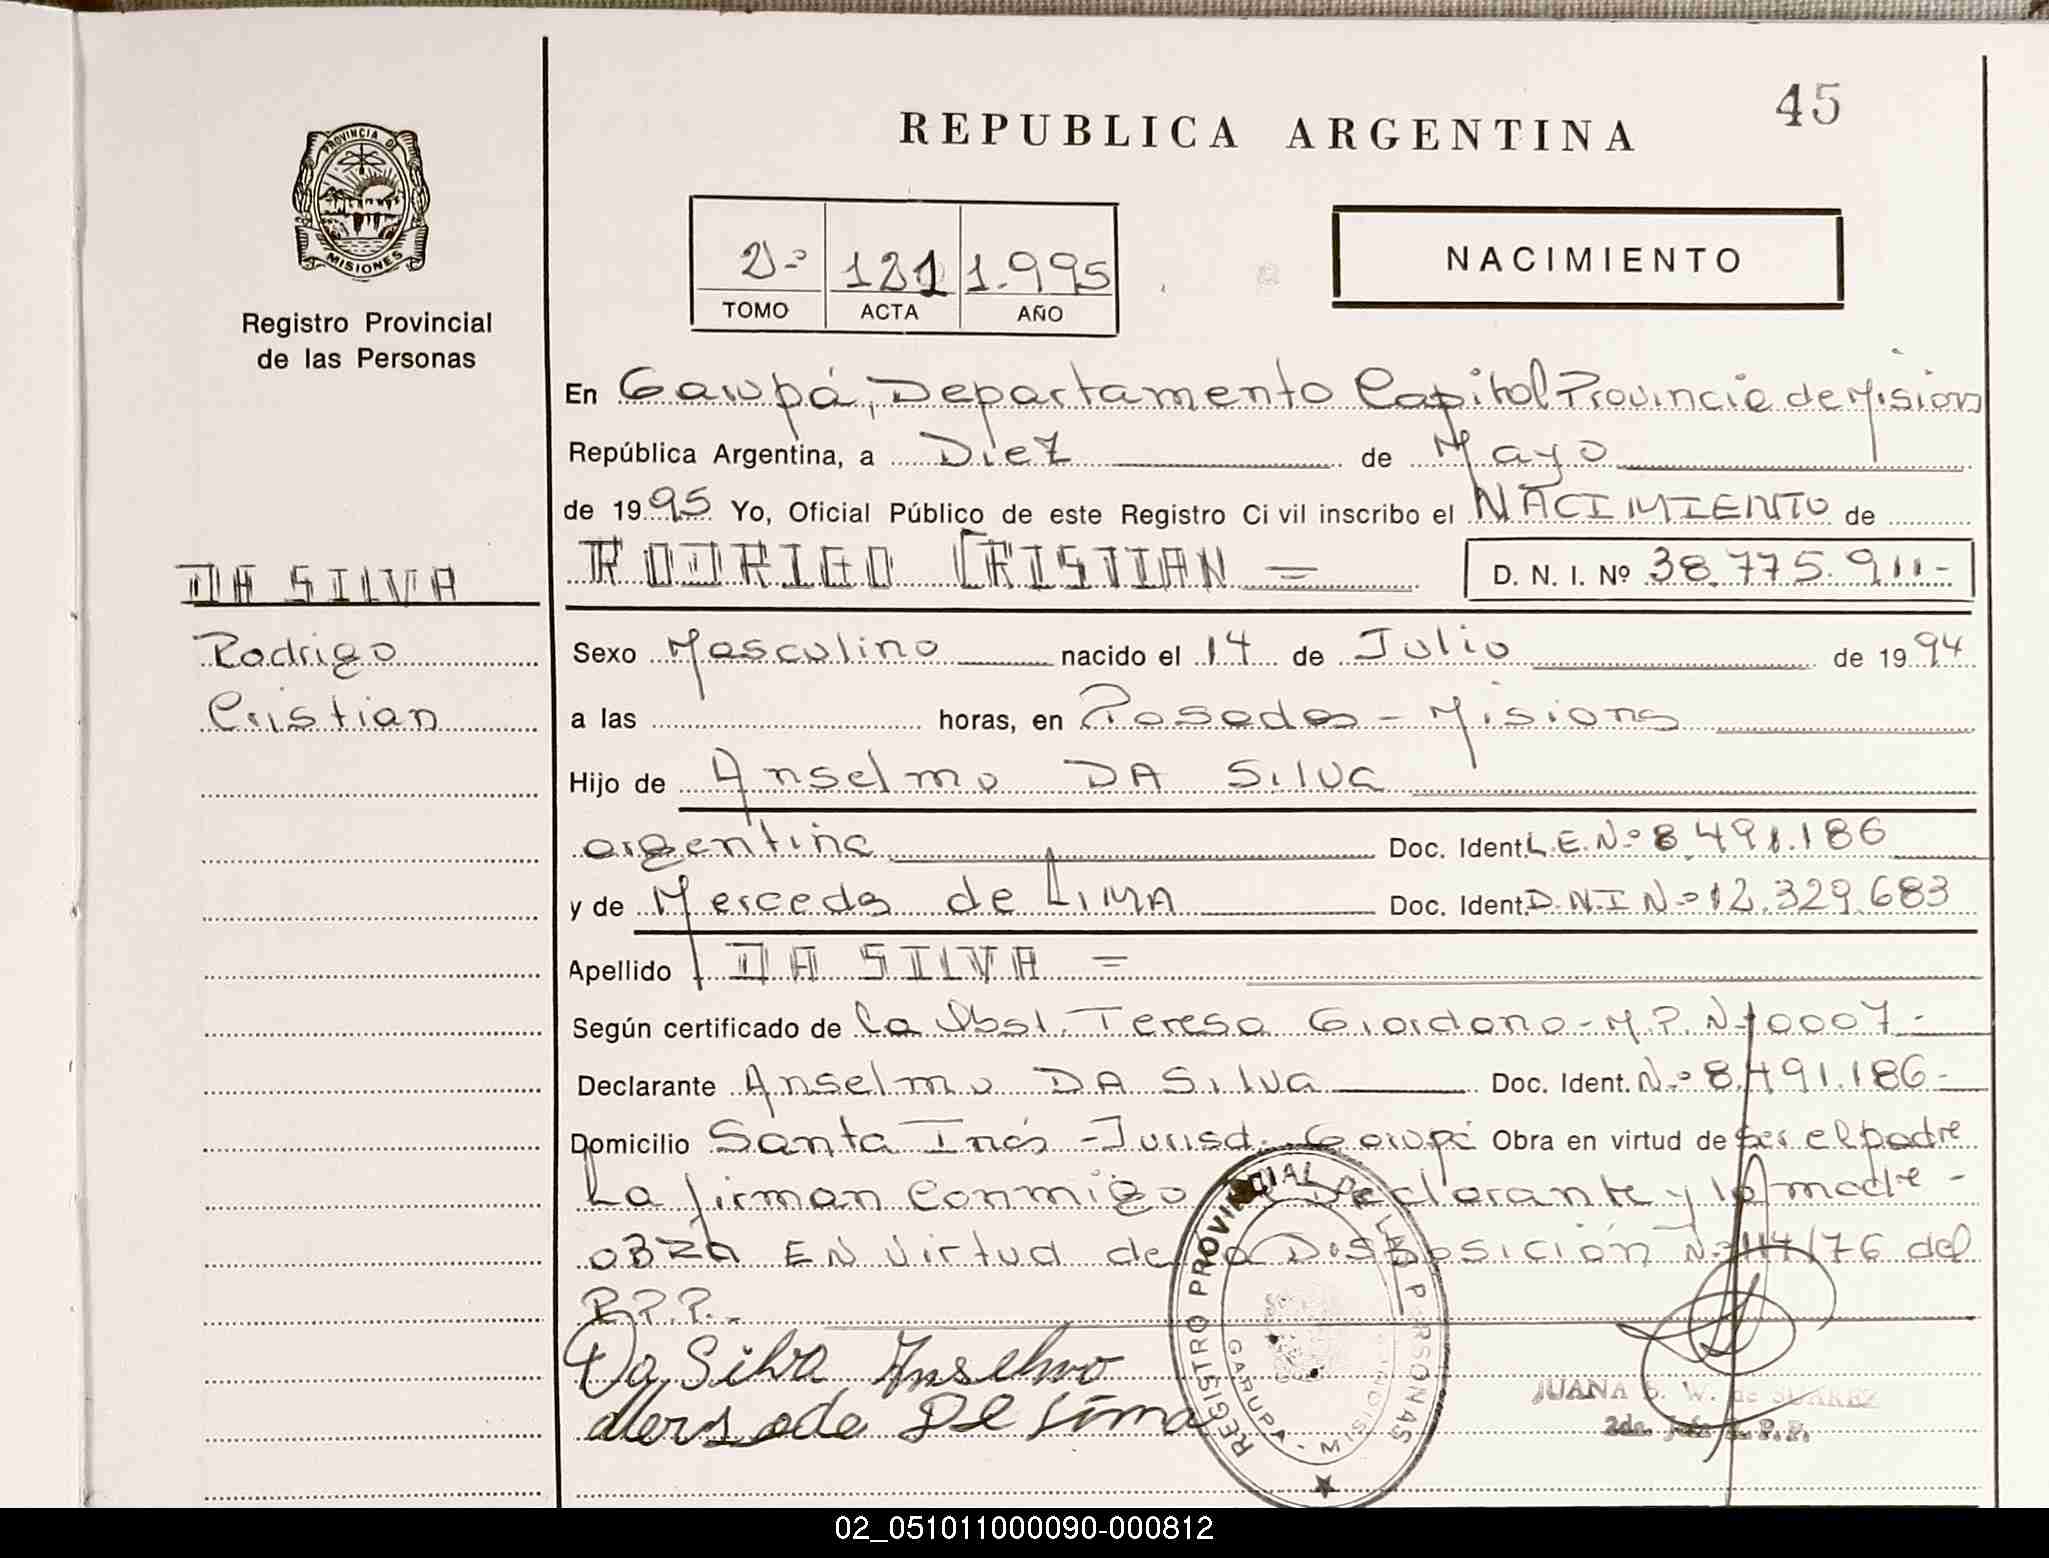 45
REPUBLICA ARGENTINA
PROVINCIA DE
MISIONES
Registro Provincial
de las Personas
2º 121 1.995
TOMO ACTA AÑO
NACIMIENTO
En Garupá, Departamento Capital Provincia de Misiones
República Argentina, a Diez de Mayo
de 1995 Yo, Oficial Público de este Registro Civil inscribo el NACIMIENTO de
DA SILVA
RODRIGO CRISTIAN = D. N. I. Nº 38.775.911-
Rodrigo
Cristian
Sexo Masculino nacido el 14 de Julio de 1994
a las horas, en Posadas - Misiones
Hijo de Anselmo DA SILVA
argentina Doc. Ident. L.E. Nº 8.491.186
y de Mercedes de LIMA Doc. Ident. D.N.I Nº 12.329.683
Apellido DA SILVA =
Según certificado de La Obst. Teresa Giordano - M.P. Nº 0007-
Declarante Anselmo DA SILVA Doc. Ident. Nº 8.491.186-
Domicilio Santa Inés - Jurisd. Garupá Obra en virtud de ser el padre
La firman conmigo el Declarante y la madre -
OBRA EN virtud de la Disposición Nº 117/76 del
R.P.P.-
Da Silva Anselmo
Mersede De Lima
REGISTRO PROVINCIAL DE LAS PERSONAS
GARUPA - MISIONES
JUANA S. W. de SUAREZ
2da. Jefe R.P.P.
02_051011000090-000812